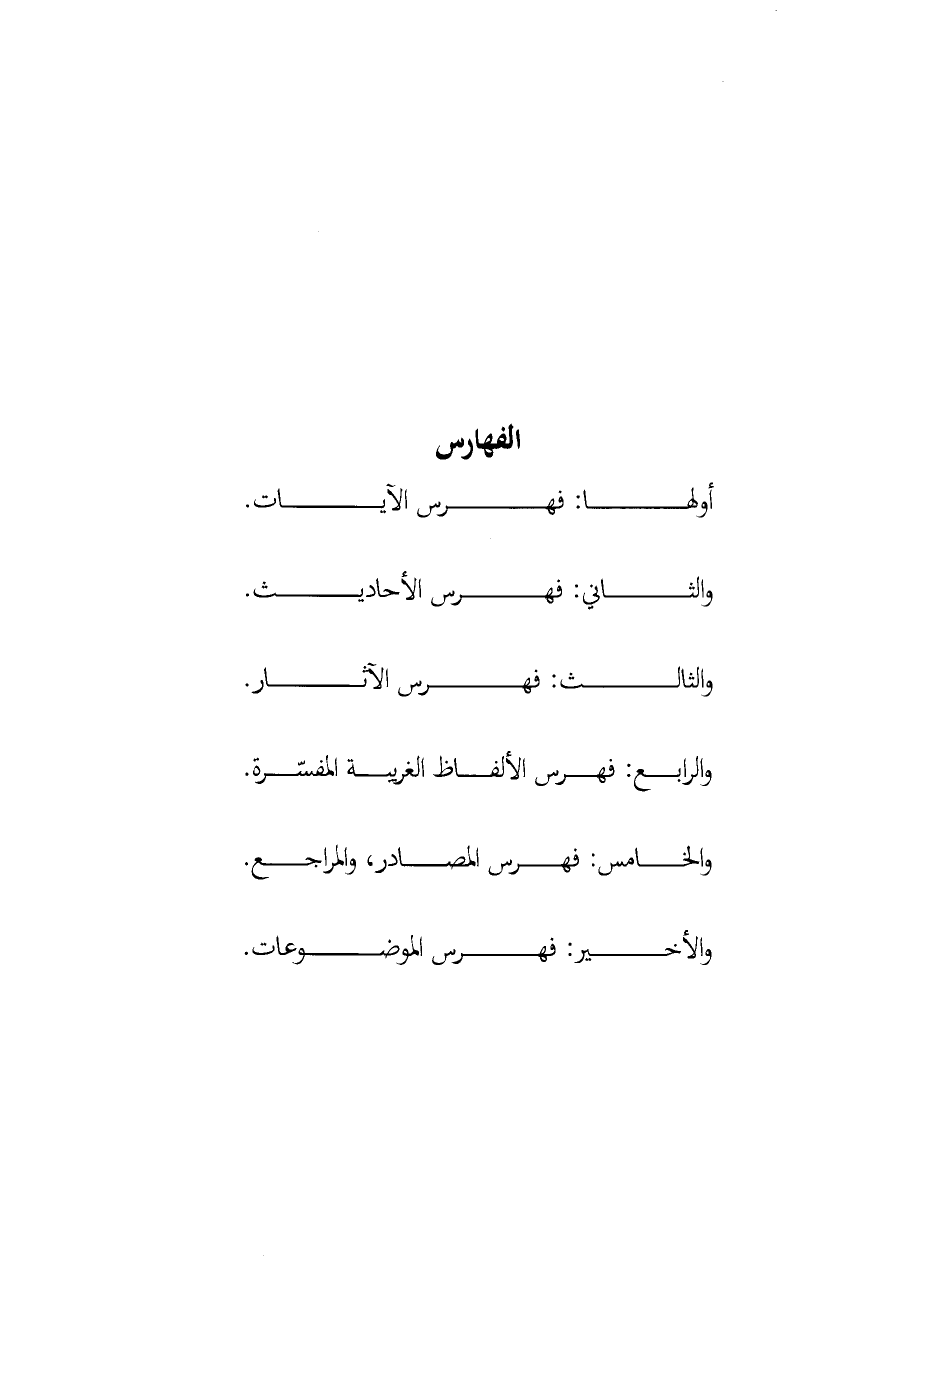 الفهارس
أولها: فهرس الآيات.
والثاني: فهرس الأحاديث.
والثالث: فهرس الآثار.
والرابع: فهرس الألفاظ الغريبة المفسّرة.
والخامس: فهرس المصادر، والمراجع.
والأخير: فهرس الموضوعات.